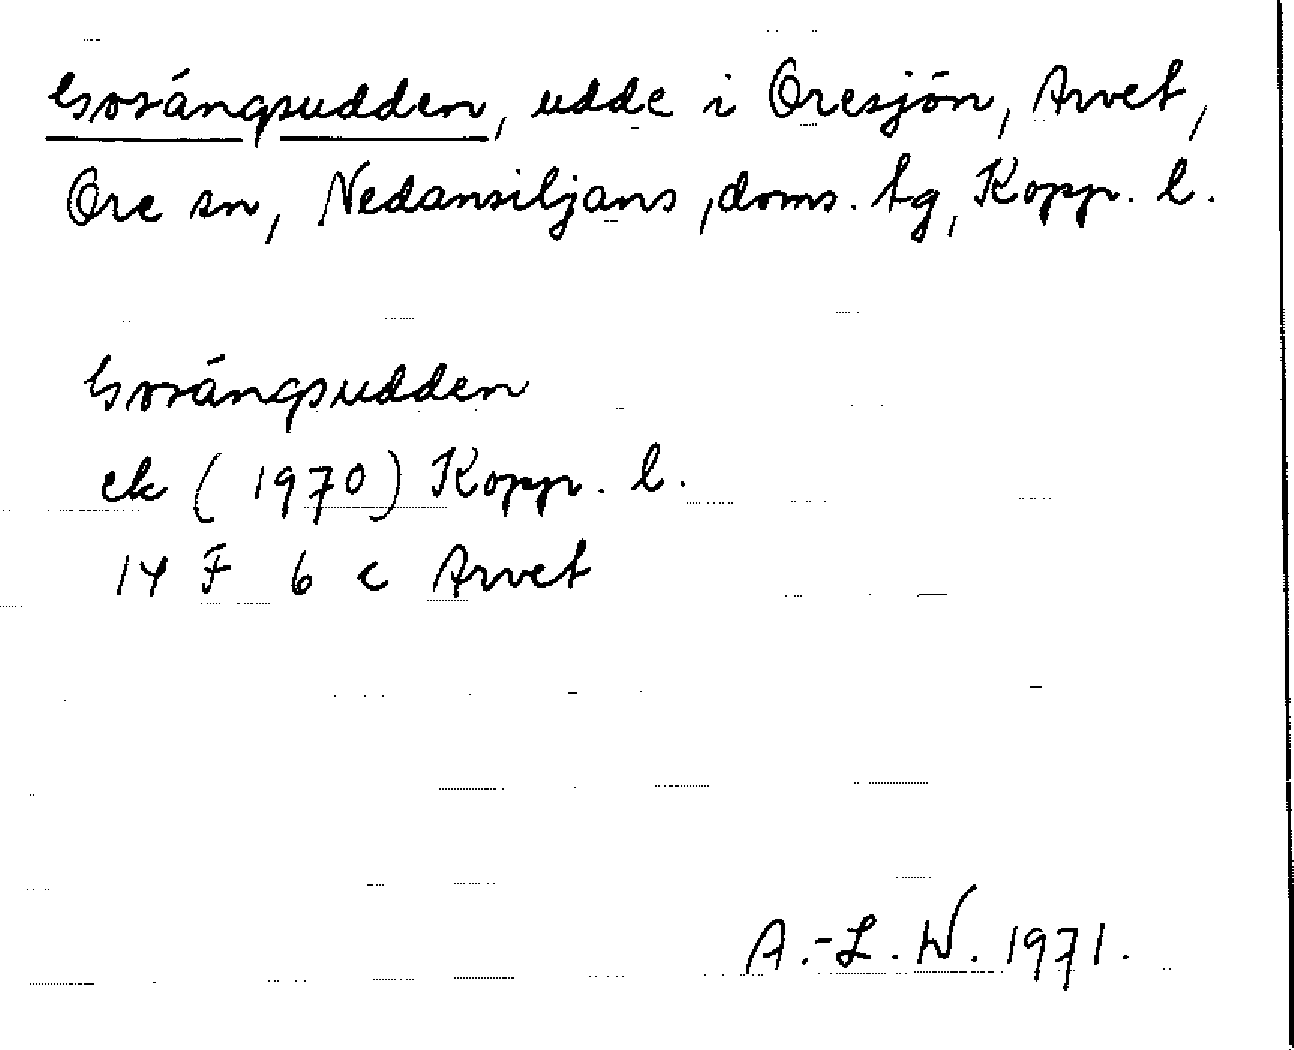 Gorängsudden, udde i Oresjön, Arvet,
Ore sn, Nedansiljans, doms. tg, Kopp. l.
Gorängsudden
ek (1970) Kopp. l.
14 F 6 c Arvet
A.-L. W. 1971.